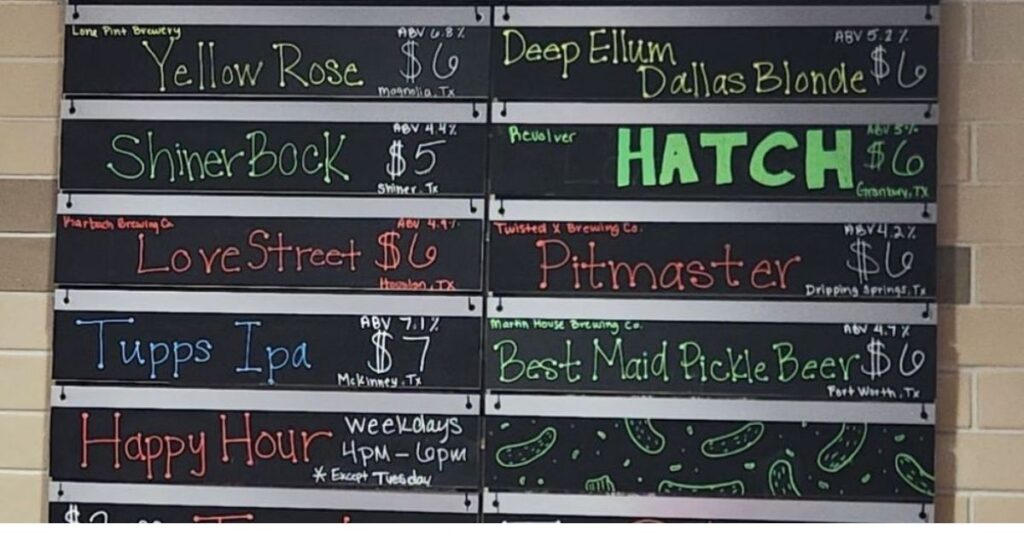 Lone Pint Brewery
ABV 6.8%
Yellow Rose $6
Magnolia, Tx
ABV 5.2%
Deep Ellum
Dallas Blonde $6
ABV 4.4%
Shiner Bock $5
Shiner, Tx
Revolver
ABV 5%
HATCH $6
Granbury, TX
Karbach Brewing Co.
ABV 4.9%
Love Street $6
Houston, TX
Twisted X Brewing Co.
ABV 4.2%
Pitmaster $6
Dripping Springs, Tx
ABV 7.1%
Tupps Ipa $7
McKinney, Tx
Martin House Brewing Co.
ABV 4.7%
Best Maid Pickle Beer $6
Fort Worth, Tx
Happy Hour
weekdays
4PM - 6pm
* Except Tuesday